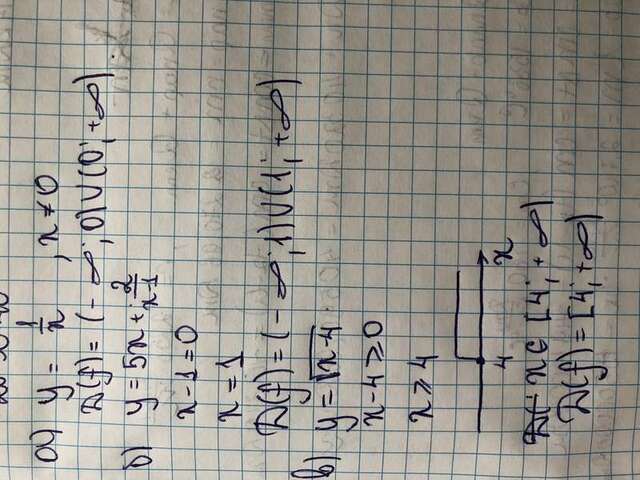 а) y = 1/x , x ≠ 0
D(f) = (-∞; 0) ∪ (0; +∞)
б) y = 5x + 2/(x-1)
x-1=0
x = 1
D(f) = (-∞; 1) ∪ (1; +∞)
в) y = √(x-4)
x-4 ≥ 0
x ≥ 4
4 x
x ∈ [4; +∞)
D(f) = [4; +∞)